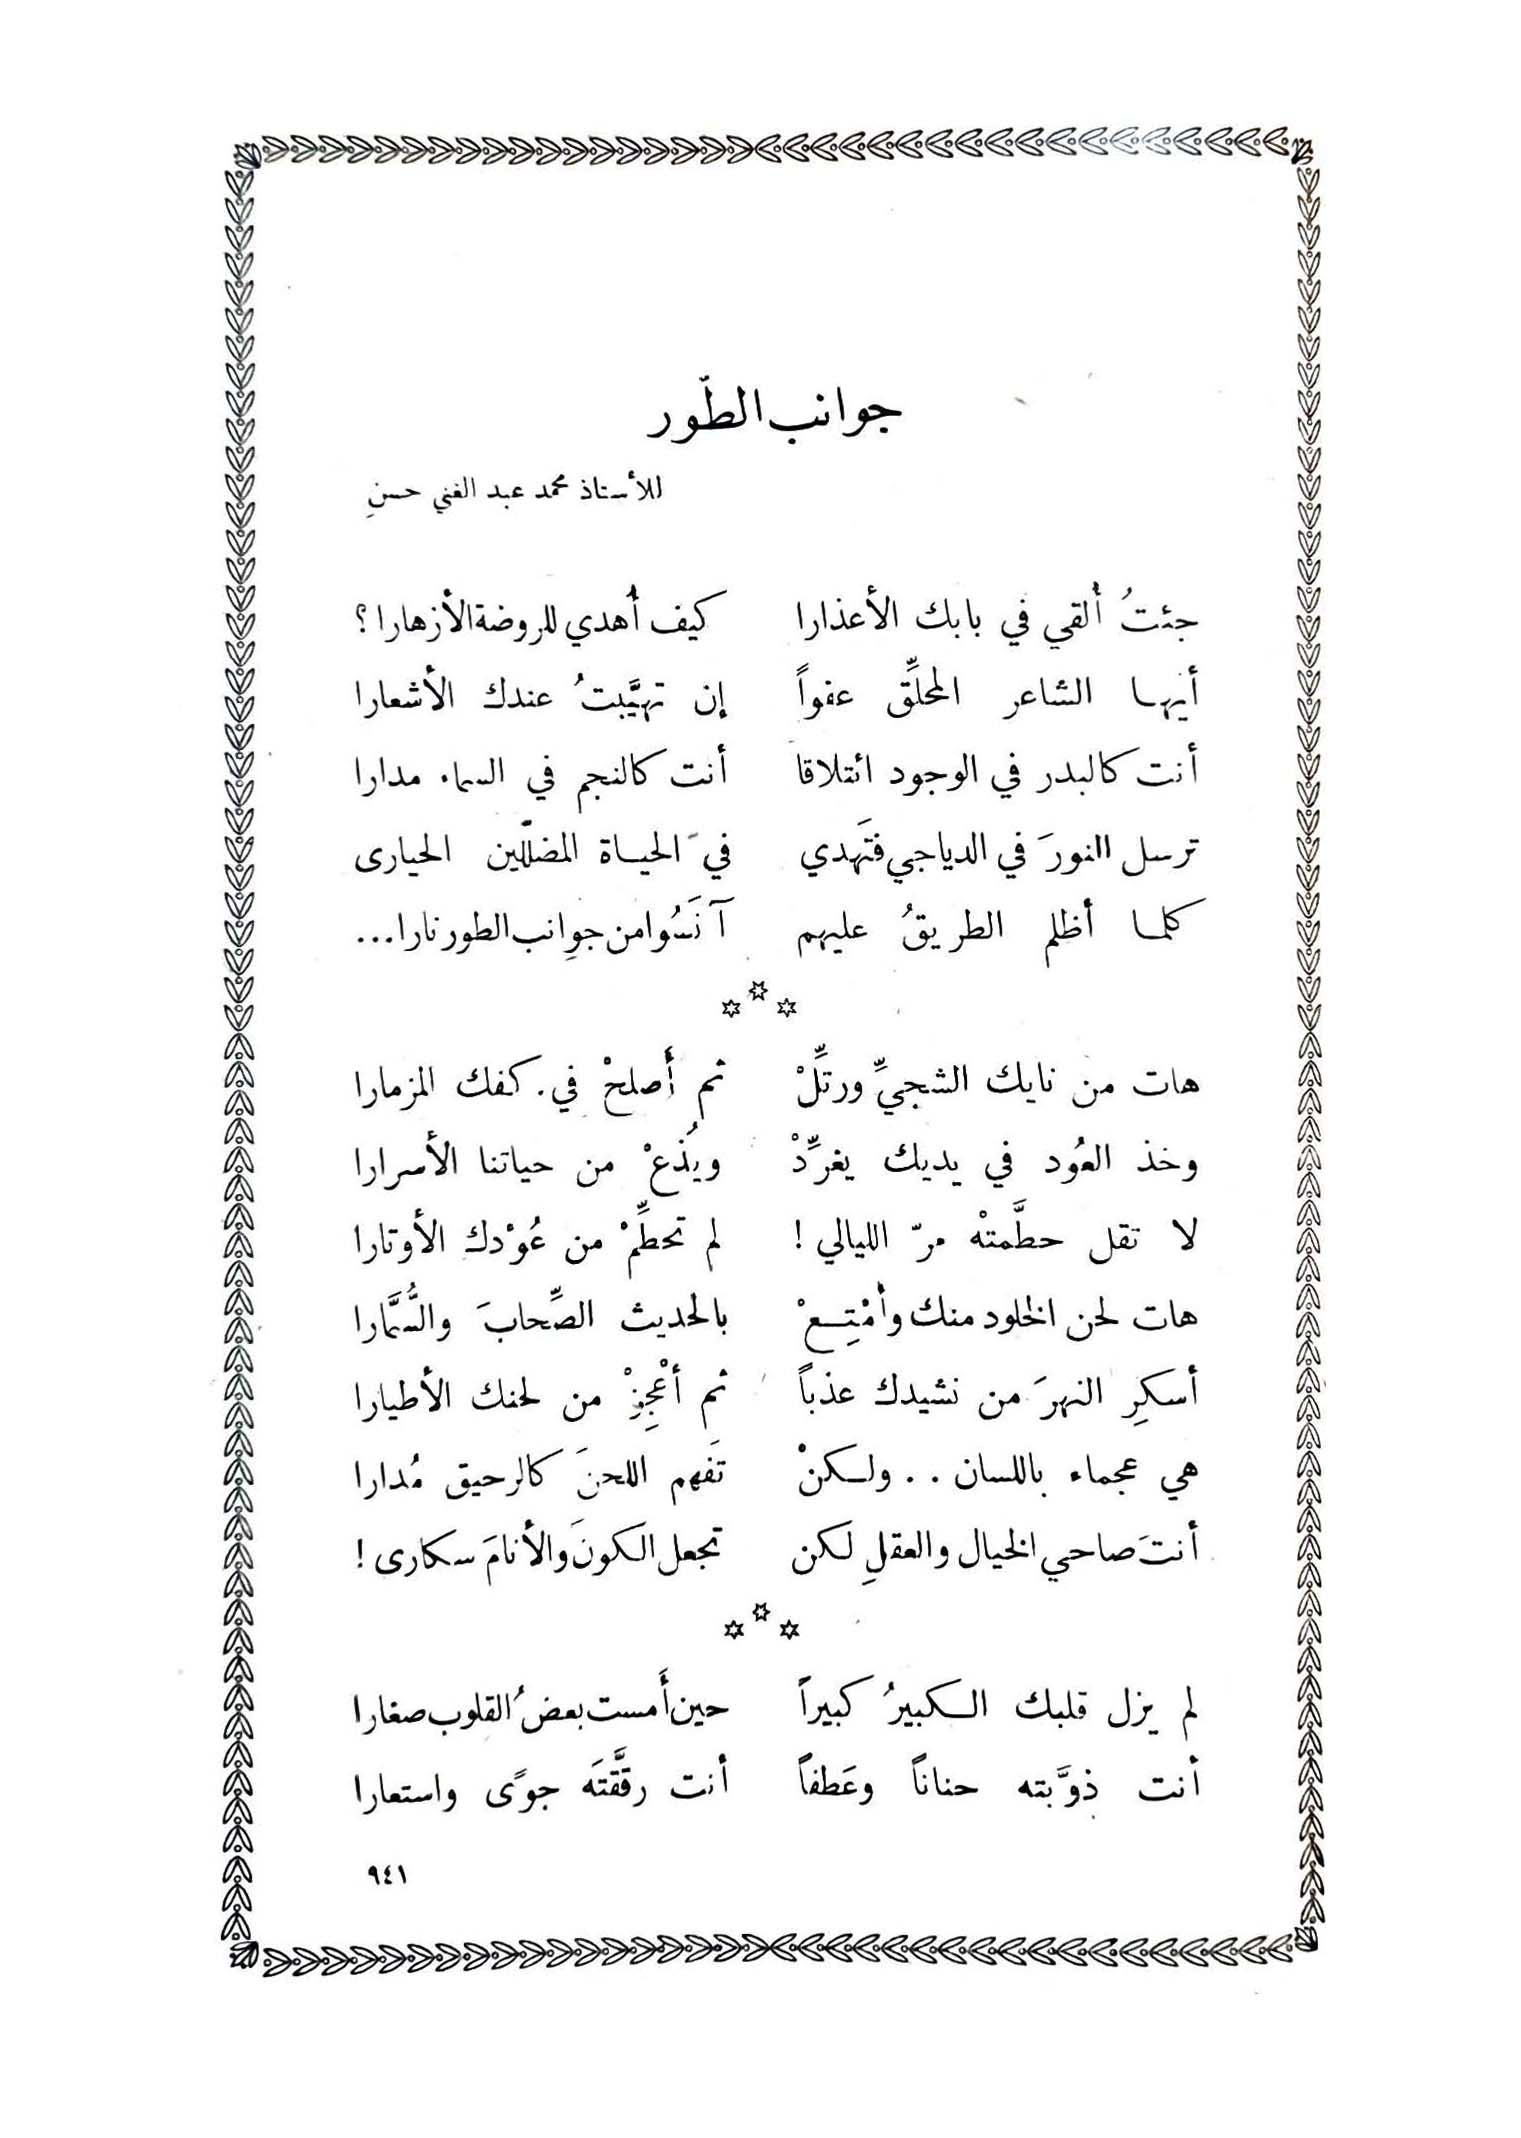 جوانب الطّور
للأستاذ محمد عبد الغني حسن
جئتُ أُلقي في بابك الأعذارا كيف أُهدي للروضة الأزهارا ؟
أيها الشاعر المحلِّق عفواً إن تهيَّبتُ عندك الأشعارا
أنت كالبدر في الوجود ائتلاقا أنت كالنجم في السماء مدارا
ترسل النورَ في الدياجي فتَهدي في الحياة المضلَّلين الحيارى
كلما أظلم الطريقُ عليهم آنَسُوا من جوانب الطور نارا...
***
هات من نايك الشجيِّ ورتِّلْ ثم أَصلحْ في كفك المزمارا
وخذ العُود في يديك يغرِّدْ ويُذعْ من حياتنا الأسرارا
لا تقل حطَّمتْه مرّ الليالي ! لم تحطِّمْ من عُوْدك الأوتارا
هات لحن الخلود منك وأمْتِعْ بالحديث الصِّحابَ والسُّمَّارا
أسكرِ النهرَ من نشيدك عذباً ثم أعْجِزْ من لحنك الأطيارا
هي عجماء باللسان . . ولكنْ تَفهم اللحنَ كالرحيق مُدارا
أنتَ صاحي الخيال والعقلِ لكن تجعل الكونَ والأنامَ سكارى !
***
لم يزل قلبك الكبيرُ كبيراً حين أَمست بعضُ القلوب صغارا
أنت ذوَّبته حناناً وعَطفاً أنت رقَّقتَه جوًى واستعارا
٩٤١